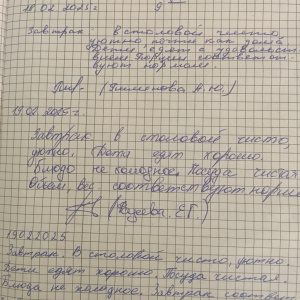 18.02.2025г
Завтрак в столовой чисто
уютно почти как дома
Дети едят с удовольст
вием Порции соответст-
вуют нормам.
(Филиппова А.Ю.)
19.02.2025г
Завтрак в столовой чисто,
уютно. Дети едят хорошо.
Блюдо не холодное. Посуда чистая
Объем, вес соответствуют норме
(Фадеева Е.Г.)
19.02.2025
Завтрак. В столовой чисто, уютно.
Дети едят хорошо. Посуда чистая.
Блюда не холодное. Завтрак соотв